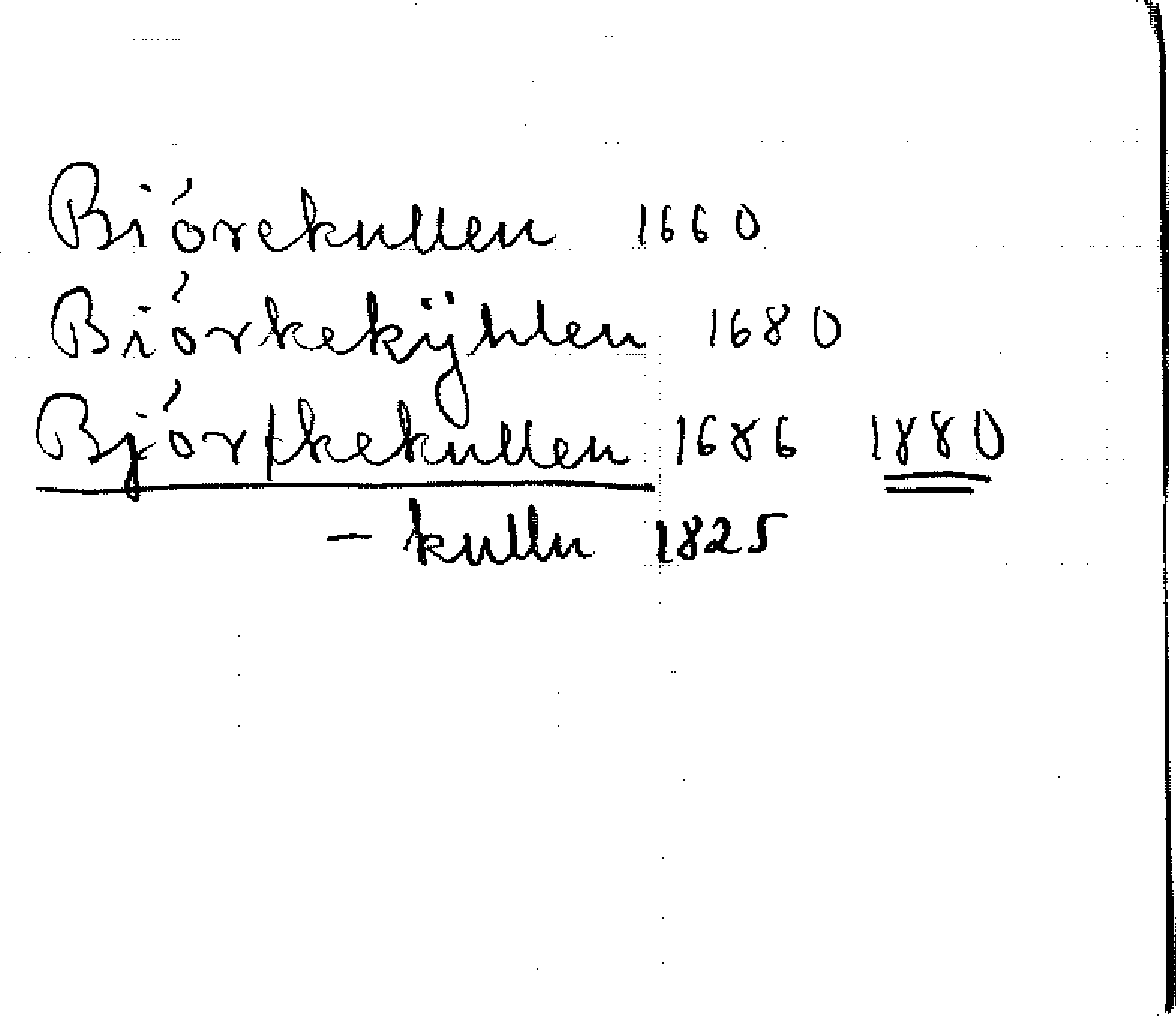 Biórekullen 1660
Biórkekÿhlen 1680
Bjór|kekullen 1686 1880
- kulln 1825